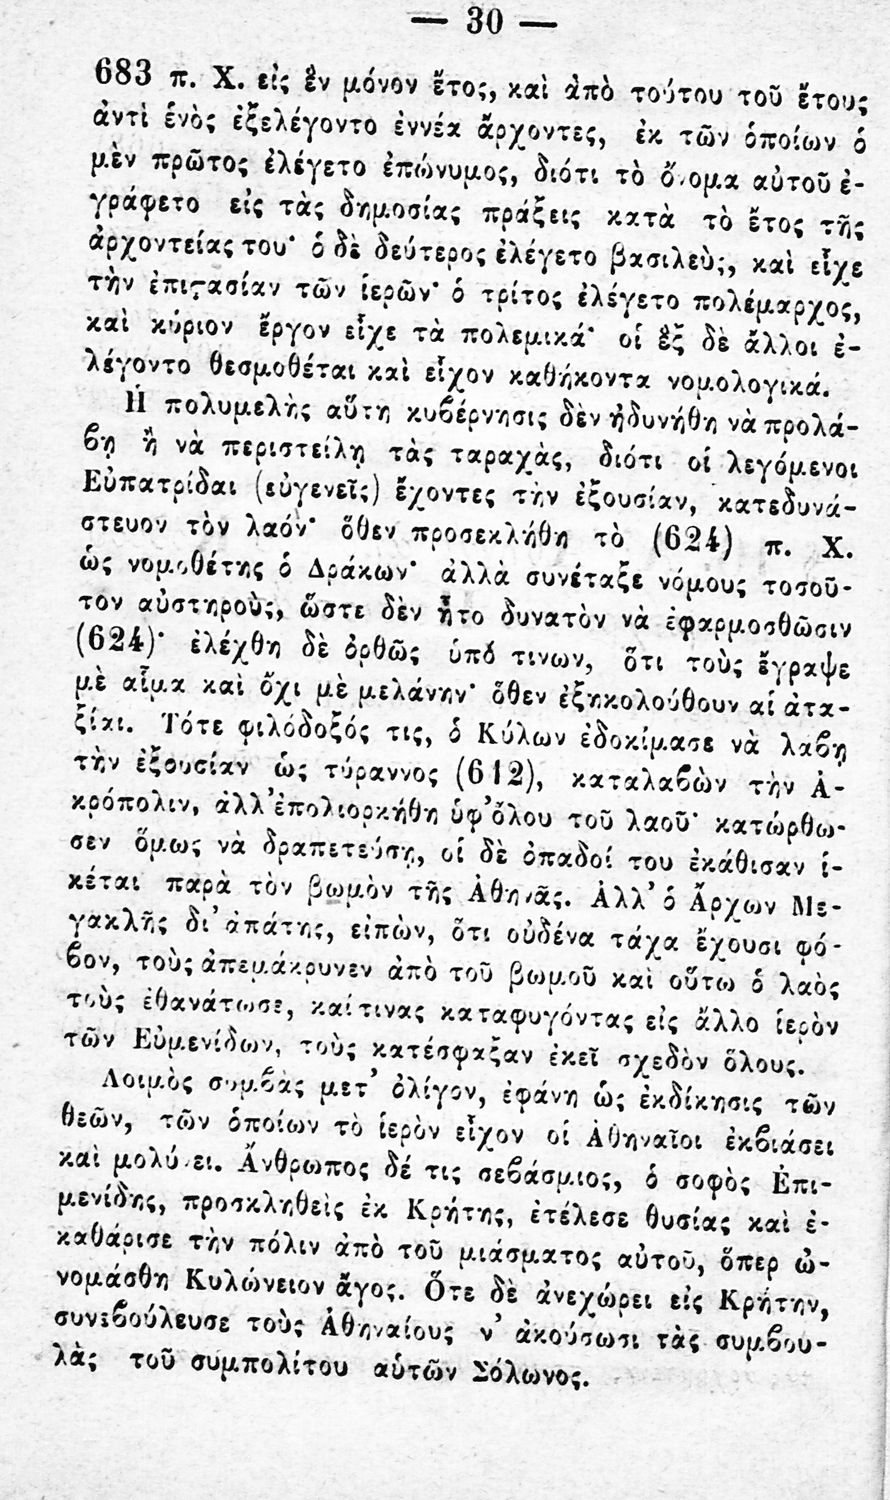 — 30 —
683 π. Χ. εἰς ἓν μόνον ἔτος, καὶ ἀπὸ τούτου τοῦ ἔτους
ἀντὶ ἑνὸς ἐξελέγοντο ἐννέα ἄρχοντες, ἐκ τῶν ὁποίων ὁ
μὲν πρῶτος ἐλέγετο ἐπώνυμος, διότι τὸ ὄνομα αὐτοῦ ἐ-
γράφετο εἰς τὰς δημοσίας πράξεις κατὰ τὸ ἔτος τῆς
ἀρχοντείας του· ὁ δὲ δεύτερος ἐλέγετο βασιλεὺς, καὶ εἶχε
τὴν ἐπιϛασίαν τῶν ἱερῶν· ὁ τρίτος ἐλέγετο πολέμαρχος,
καὶ κύριον ἔργον εἶχε τὰ πολεμικά· οἱ ἓξ δὲ ἄλλοι ἐ-
λέγοντο θεσμοθέται καὶ εἶχον καθήκοντα νομολογικά.
Ἡ πολυμελὴς αὕτη κυβέρνησις δὲν ἠδυνήθη νὰ προλά-
βῃ ἢ νὰ περιστείλῃ τὰς ταραχὰς, διότι οἱ λεγόμενοι
Εὐπατρίδαι (εὐγενεῖς) ἔχοντες τὴν ἐξουσίαν, κατεδυνά-
στευον τὸν λαόν· ὅθεν προσεκλήθη τὸ (624) π. Χ.
ὡς νομοθέτης ὁ Δράκων· ἀλλὰ συνέταξε νόμους τοσοῦ-
τον αὐστηροὺς, ὥστε δὲν ἦτο δυνατὸν νὰ ἐφαρμοσθῶσιν
(624)· ἐλέχθη δὲ ὀρθῶς ὑπό τινων, ὅτι τοὺς ἔγραψε
μὲ αἷμα καὶ ὄχι μὲ μελάνην· ὅθεν ἐξηκολούθουν αἱ ἀτα-
ξίαι. Τότε φιλόδοξός τις, ὁ Κύλων ἐδοκίμασε νὰ λαβῃ
τὴν ἐξουσίαν ὡς τύραννος (612), καταλαβὼν τὴν Ἀ-
κρόπολιν, ἀλλ' ἐπολιορκήθη ὑφ' ὅλου τοῦ λαοῦ· κατώρθω-
σεν ὅμως νὰ δραπετεύσῃ, οἱ δὲ ὀπαδοί του ἐκάθισαν ἱ-
κέται παρὰ τὸν βωμὸν τῆς Ἀθηνᾶς. Ἀλλ' ὁ Ἄρχων Με-
γακλῆς δι' ἀπάτης, εἰπὼν, ὅτι οὐδένα τάχα ἔχουσι φό-
βον, τοὺς ἀπεμάκρυνεν ἀπὸ τοῦ βωμοῦ καὶ οὕτω ὁ λαὸς
τοὺς ἐθανάτωσε, καί τινας καταφυγόντας εἰς ἄλλο ἱερὸν
τῶν Εὐμενίδων, τοὺς κατέσφαξαν ἐκεῖ σχεδὸν ὅλους.
Λοιμὸς συμβὰς μετ' ὀλίγον, ἐφάνη ὡς ἐκδίκησις τῶν
θεῶν, τῶν ὁποίων τὸ ἱερὸν εἶχον οἱ Ἀθηναῖοι ἐκβιάσει
καὶ μολύνει. Ἄνθρωπος δέ τις σεβάσμιος, ὁ σοφὸς Ἐπι-
μενίδης, προσκληθεὶς ἐκ Κρήτης, ἐτέλεσε θυσίας καὶ ἐ-
καθάρισε τὴν πόλιν ἀπὸ τοῦ μιάσματος αὐτοῦ, ὅπερ ὠ-
νομάσθη Κυλώνειον ἄγος. Ὅτε δὲ ἀνεχώρει εἰς Κρήτην,
συνεβούλευσε τοὺς Ἀθηναίους ν' ἀκούσωσι τὰς συμβου-
λὰς τοῦ συμπολίτου αὑτῶν Σόλωνος.